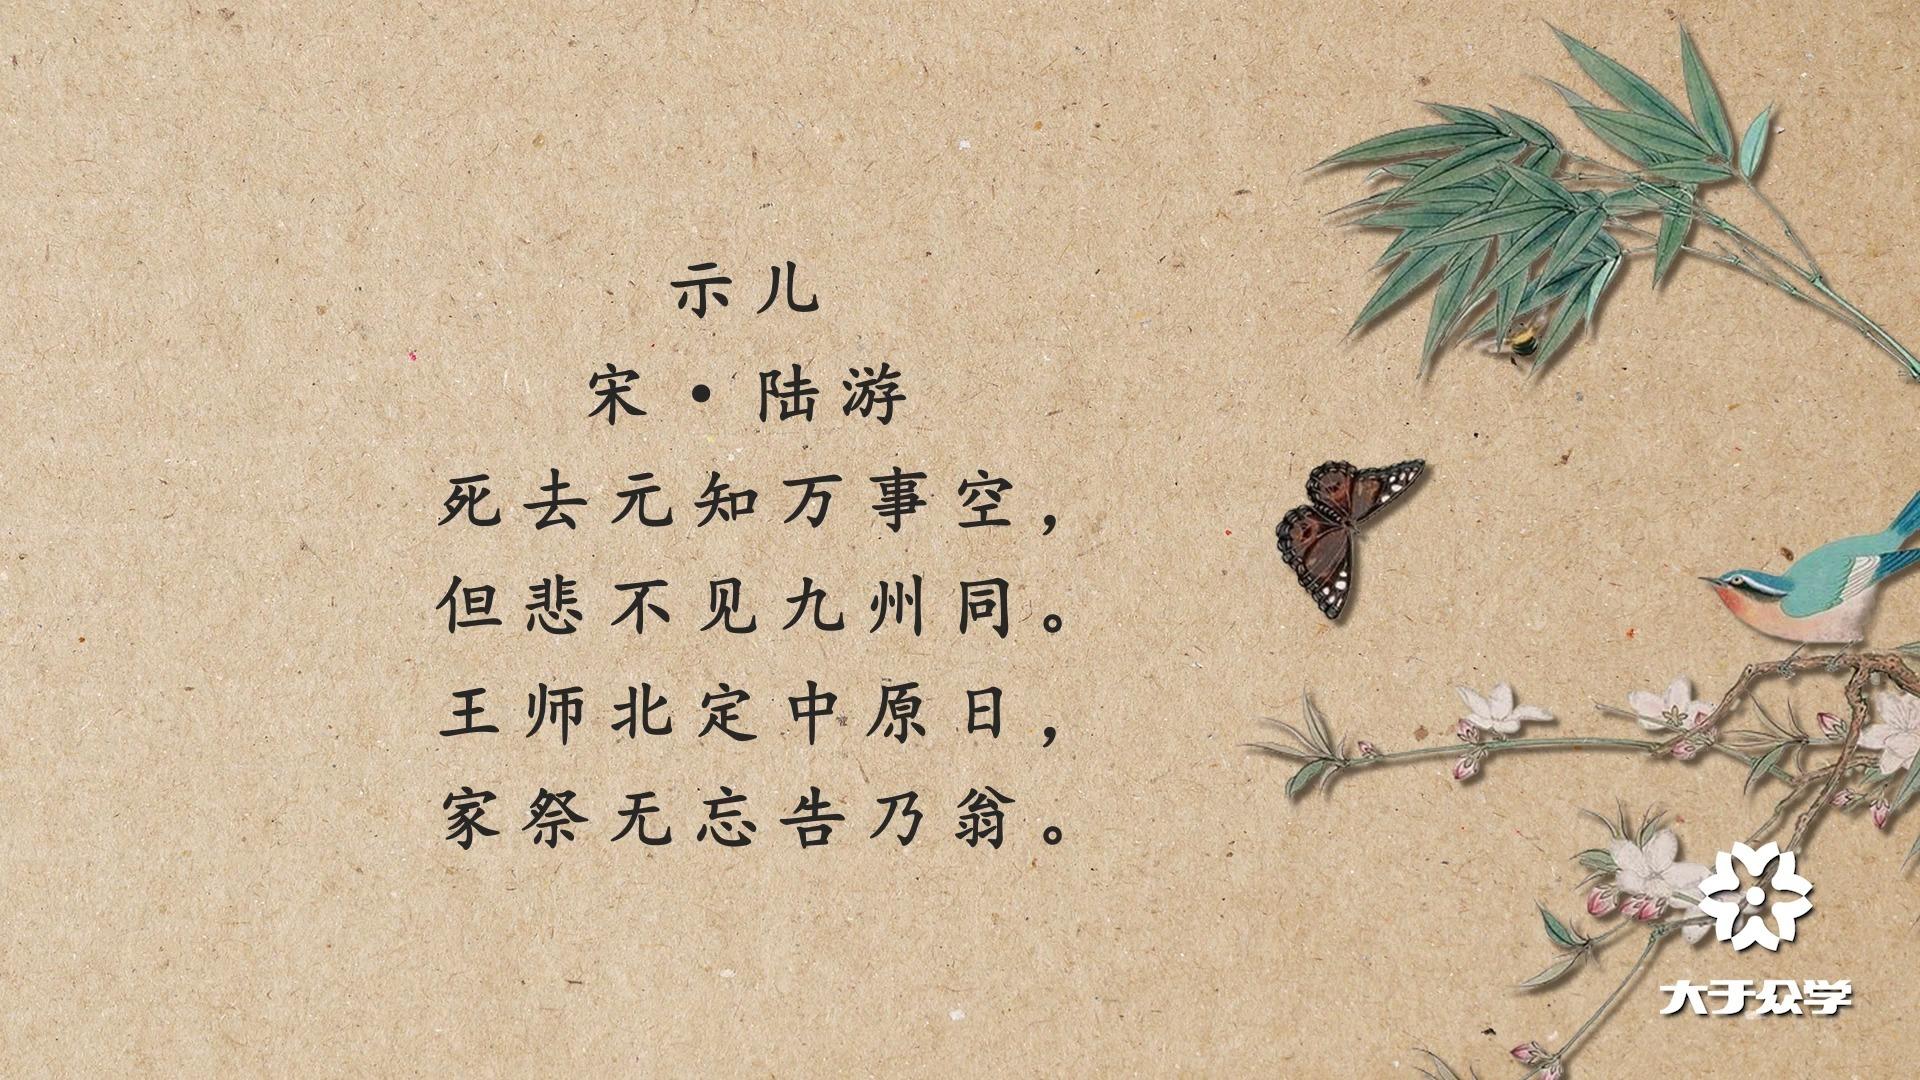 示儿
宋·陆游
死去元知万事空，
但悲不见九州同。
王师北定中原日，
家祭无忘告乃翁。
大于众学